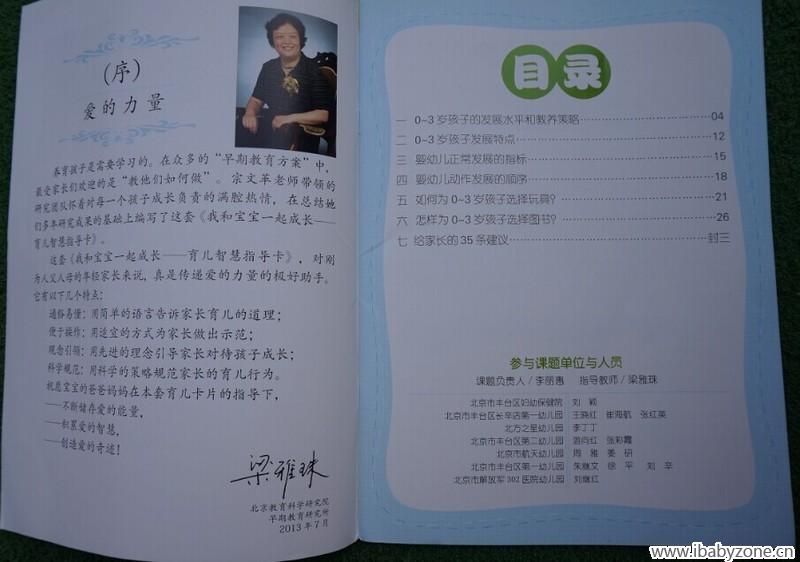 (序)
爱的力量
养育孩子是需要学习的。在众多的“早期教育方案”中，
最受家长们欢迎的是“教他们如何做”。宗文革老师带领的
研究团队怀着对每一个孩子成长负责的满腔热情，在总结她
们多年研究成果的基础上编写了这套《我和宝宝一起成长——
育儿智慧指导卡》。
这套《我和宝宝一起成长——育儿智慧指导卡》，对刚
为人父人母的年轻家长来说，真是传递爱的力量的极好助手。
它有以下几个特点：
通俗易懂：用简单的语言告诉家长育儿的道理；
便于操作：用适宜的方式为家长做出示范；
观念引领：用先进的理念引导家长对待孩子成长；
科学规范：用科学的策略规范家长的育儿行为。
祝愿宝宝的爸爸妈妈在本套育儿卡片的指导下，
——不断储存爱的能量，
——积累爱的智慧，
——创造爱的奇迹！
梁雅珠
北京教育科学研究院
早期教育研究所
2013年7月
目录
一 0-3岁孩子的发展水平和教养策略……04
二 0-3岁孩子发展特点……12
三 婴幼儿正常发展的指标……15
四 婴幼儿动作发展的顺序……18
五 如何为0-3岁孩子选择玩具？……21
六 怎样为0-3岁孩子选择图书？……26
七 给家长的35条建议……封三
参与课题单位与人员
课题负责人/李丽惠 指导教师/梁雅珠
北京市丰台区妇幼保健院 刘颖
北京市丰台区长辛店第一幼儿园 王晓红 崔海航 张红英
北方之星幼儿园 李丁丁
北京市丰台区第二幼儿园 游向红 张彩霞
北京市航天幼儿园 周雅 姜研
北京市丰台区第一幼儿园 朱继文 徐平 刘辛
北京市解放军302医院幼儿园 刘继红
www.ibabyzone.cn